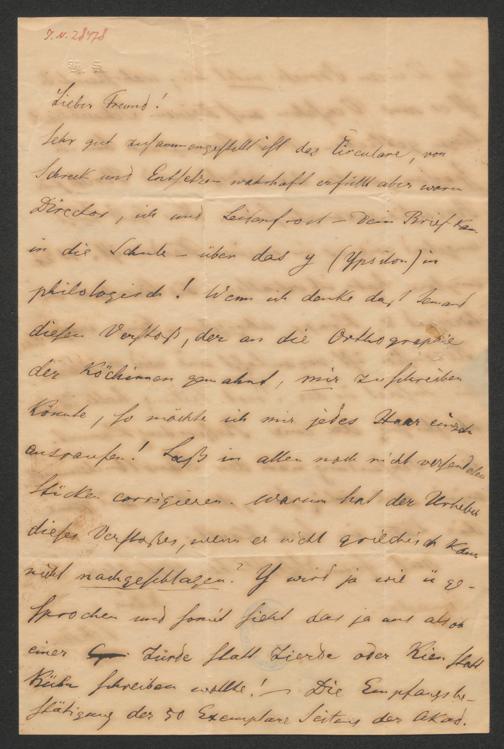 I.N. 28478
Lieber Freund!
Sehr gut zusammengestellt ist das Circulare, von
Schreck und Entsetzen wahrhaft erfüllt aber waren
Director, ich und Leisenfrost – Dein Brief kam
in die Schule – über das y (Ypsilon) in
philologisch! Wenn ich denke daß Jemand
diesen Verstoß, der an die Orthographie
der Köchinnen gemahnt, mir zuschreiben
könnte, so möchte ich mir jedes Haar einzeln
ausraufen! Laß in allen noch nicht versendeten
Stücken corrigieren. Warum hat der Urheber
dieses Verstoßes, wenn er nicht griechisch kann
nicht nachgeschlagen? Y wird ja wie ü ge-
sprochen und somit sieht das ja aus als ob
einer Zürde statt Zierde oder Kien statt
Kühn schreiben wollte! – Die Empfangsbe-
stätigung der 50 Exemplare Seitens der Akad.